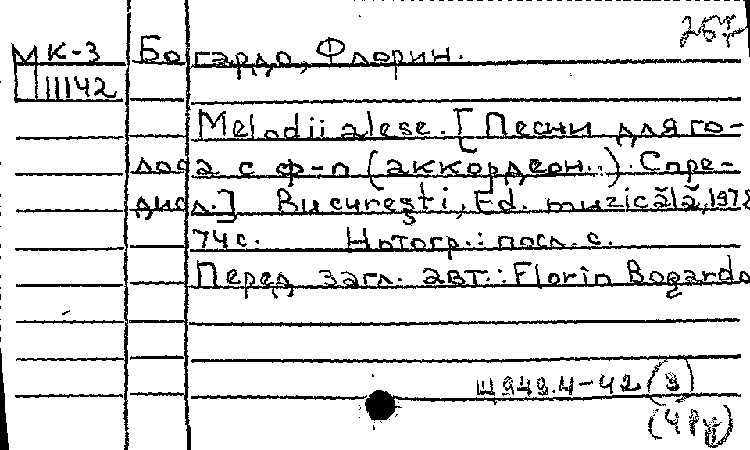 267
МК-3 Богардо, Флорин.
11142
Melodii alese. [Песни для го-
лоса с ф-п (аккордеон..). С пре-
дисл.] București, Ed. muzicălă, 1978
74 с. Нотогр.: посл. с.
Перед загл. авт.: Florin Bogardo
Щ949.4-42 (3)
(4Ру)